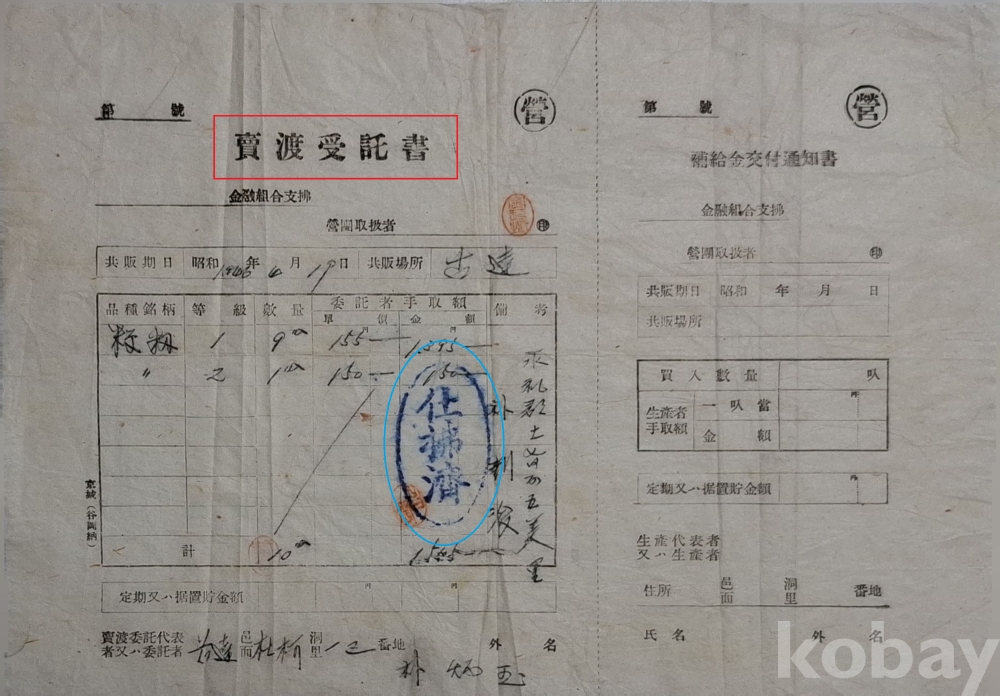 第 號
營
賣渡受託書
金融組合支拂
營團取扱者 印
共販期日 昭和 1946 年 4 月 19 日 共販場所 古達
品種銘柄 等級 數量 委託者手取額 備考
單價 金額
円 円
1 9 155
〃 2 1 150 150
仕拂濟
計 10
定期又ハ据置貯金額 円 円
賣渡委託代表 邑 洞 番地 外 名
者又ハ委託者 面 里
朴 炳 玉
京城(谷岡納)
第 號
營
補給金交付通知書
金融組合支拂
營團取扱者 印
共販期日 昭和 年 月 日
共販場所
買入數量 叺
生產者手取額 一叺當 円
金額
定期又ハ据置貯金額 円
生產代表者
又ハ生產者
住所 邑面 洞里 番地
氏名 外 名
kobay